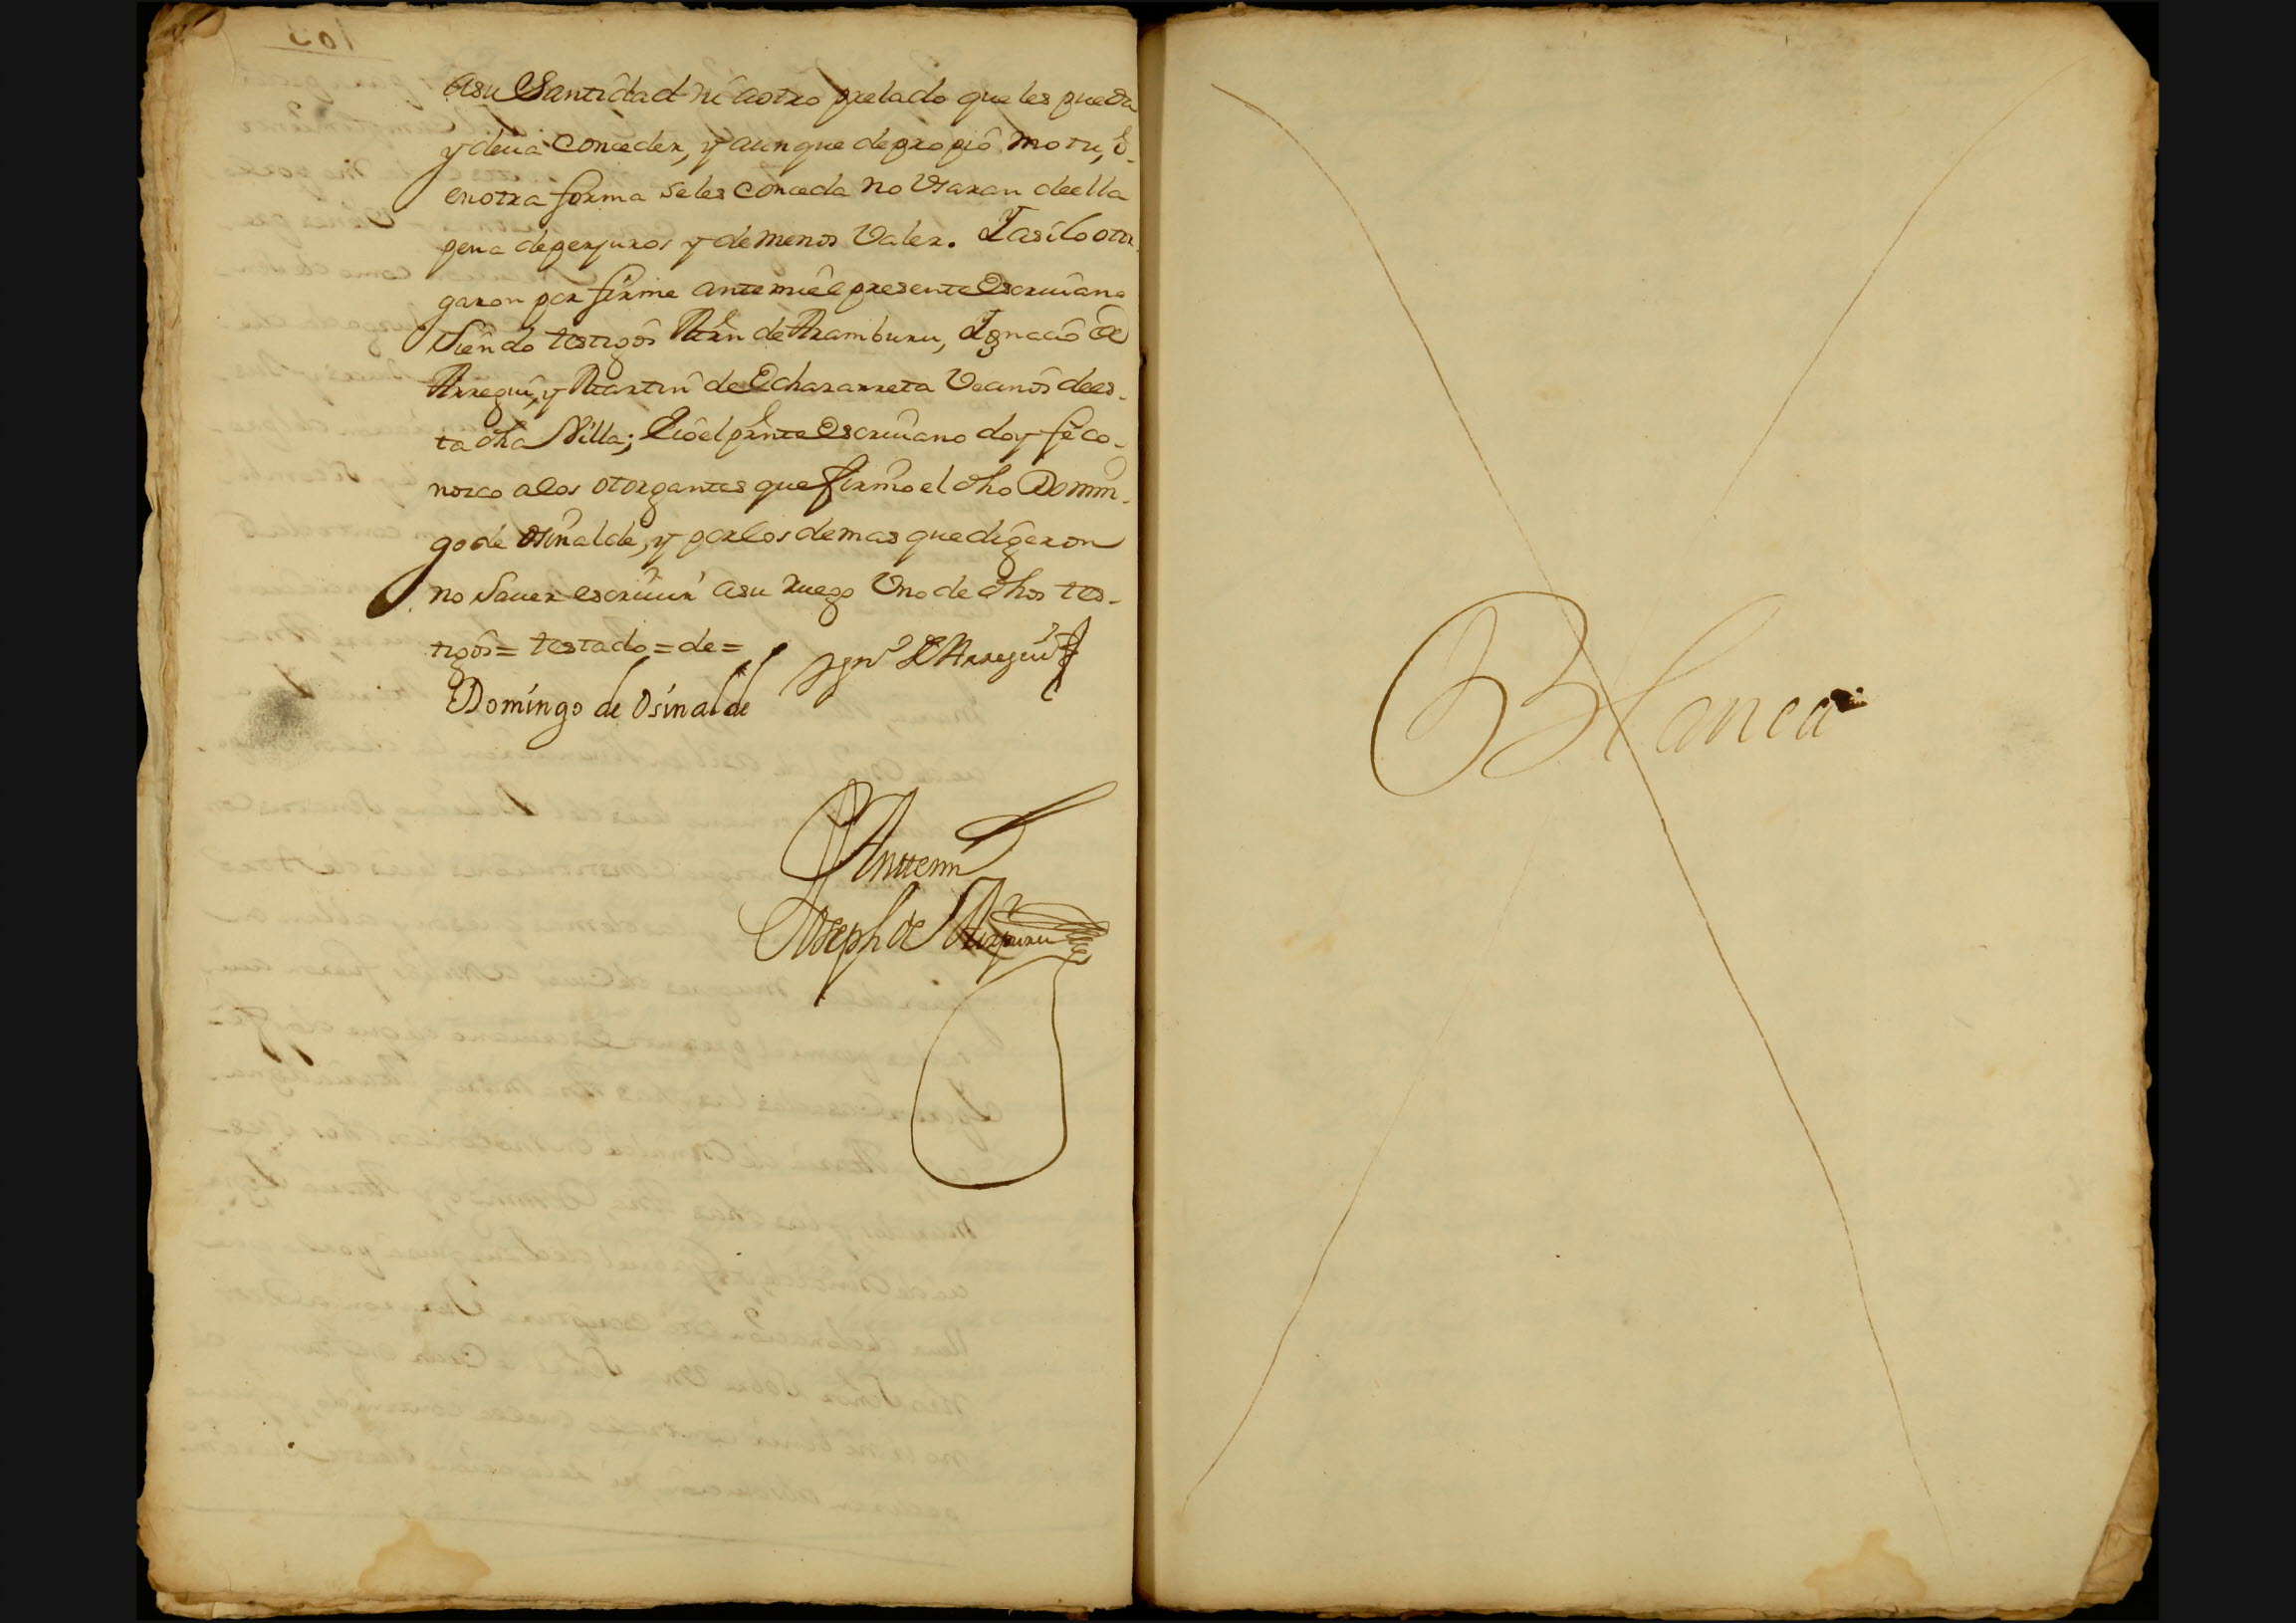 asu Santidad ni aotro prelado que les pueda
y deua conceder, y aunque depropio motu, o
enotra forma seles conceda no vsaran deella
pena deperjuros y demenos valer. Iasilo otor
garon por firme antemi el presente escriuano
siendo testigos de Aramburu, Ignacio de
Arregui, y Martin de Echaxarreta vecinos dees-
ta dha Villa; Eio el prnte escriuano doy fe co-
nozco alos otorgantes que firmo el dho Domin-
go de Osinalde, y por los demas que digeron
no sauer escriuir asu ruego vno de dhos tes-
tigos = testado = de =
Ign.º de Arregui
Domingo de Osinalde
Anttemi
Joseph de
Blanca